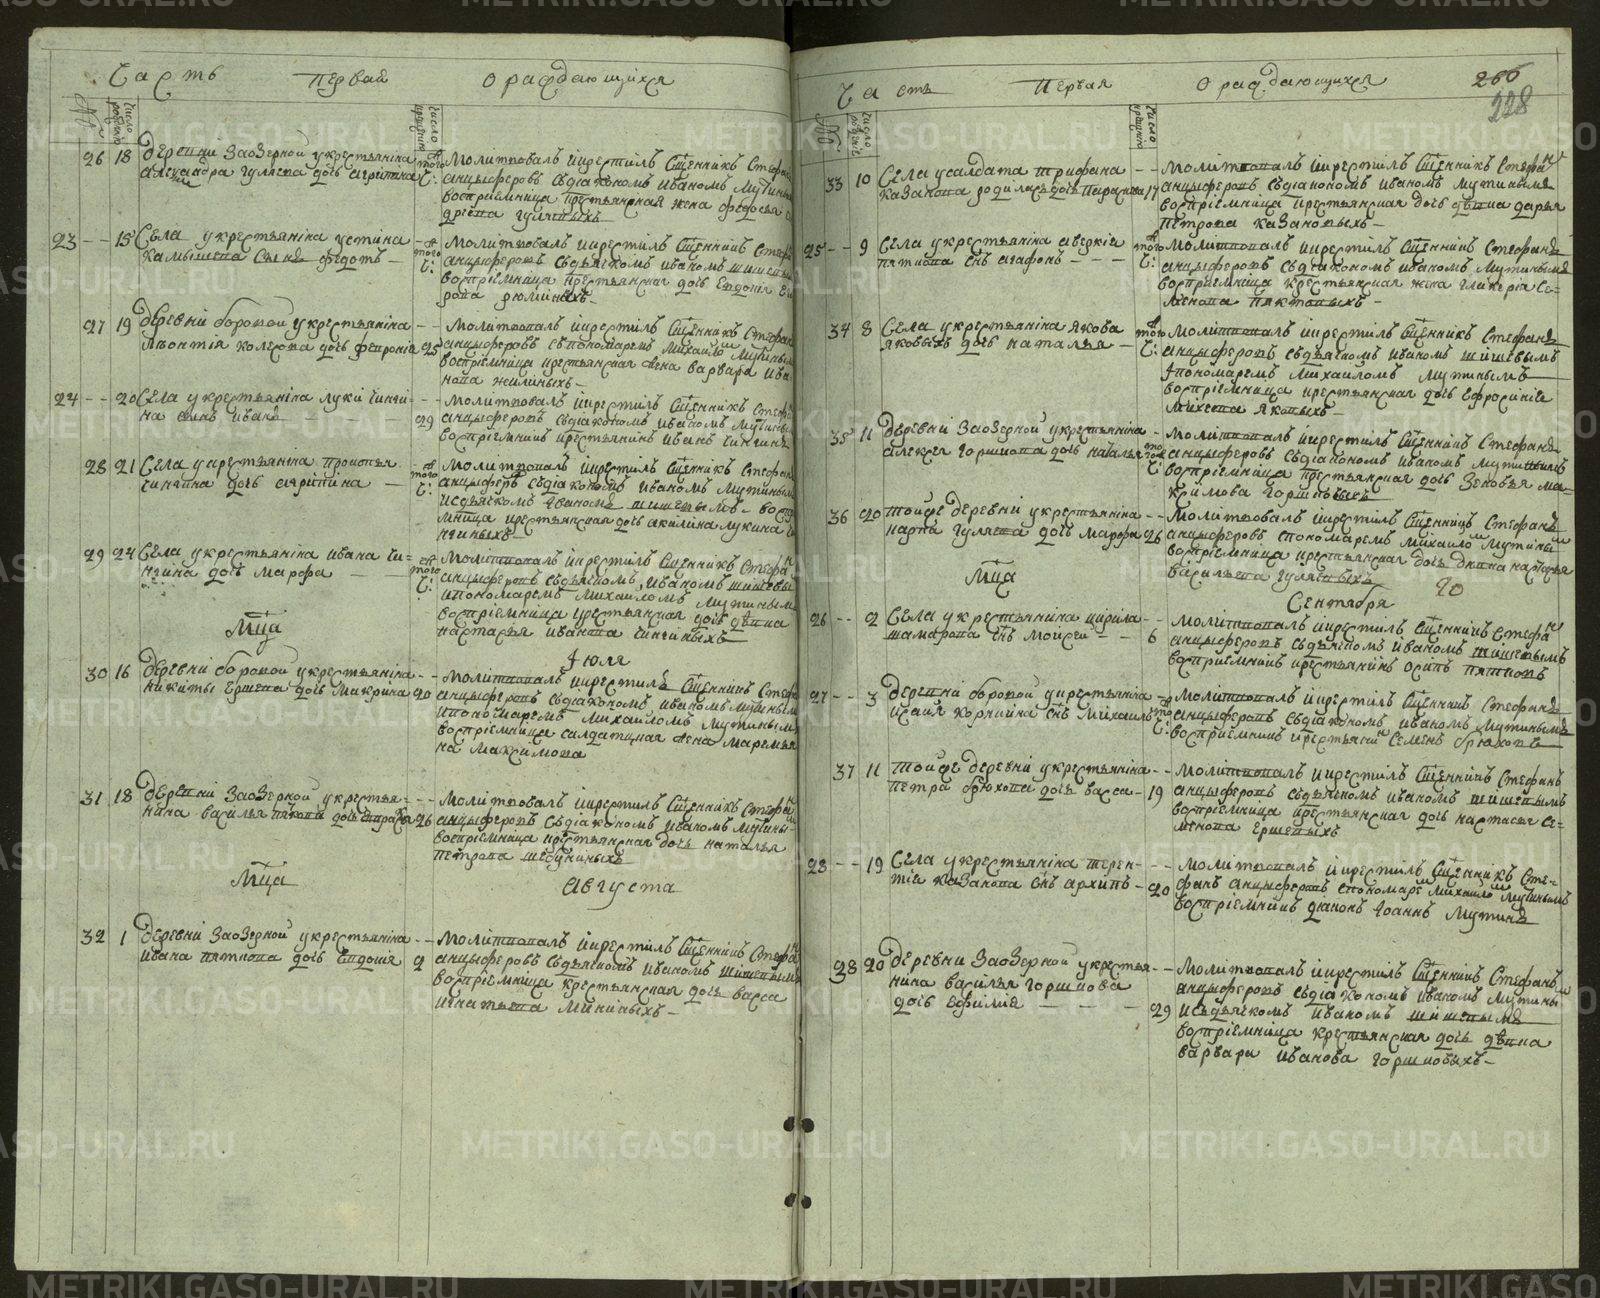 Часть Первая О раждающихся
№ число рождения число крещения
26 18 Деревни Заозерной укрестьянина того
Александра Гуляева дочь Агрипина ч:
Молитвовалъ икрестилъ Сщенникъ Стефанъ
анцыферовъ сьдіакономъ Иваномъ Мутинымъ
восприемница крестьянская жена Федосья
Гуляевыхъ
23 -- 15 Села укрестьянина устина того
Камышева сынъ Федотъ ч:
Молитвовалъ икрестилъ Сщенникъ Стефанъ
анцыферовъ сьдьячкомъ Иваномъ Шишевымъ
восприемница крестьянская дочь Евдокія
рюминыхъ
27 19 деревни боровой укрестьянина --
Леонтія Колесова дочь Феврония 25
Молитвовалъ икрестилъ Сщенникъ Стефанъ
анцыферовъ спономаремъ Михайломъ Мутинымъ
восприемница крестьянская жена варвара Ива
нова жилиныхъ
24 -- 20 Села укрестьянина луки чинги- --
на сынъ Иванъ 29
Молитвовалъ икрестилъ Сщенникъ Стефанъ
анцыферовъ сьдіакономъ Иваномъ Мутинымъ
восприемникъ крестьянинъ Иванъ Чингинъ
28 21 Села укрестьянина Прокопья того
Чингина дочь агрипина ч:
Молитвовалъ икрестилъ Сщенникъ Стефанъ
анцыферъ сьдіакономъ Иваномъ Мутинымъ
исдьячкомъ Иваномъ Шишевымъ воспр
мница крестьянская дочь акилина лукина чи
нгиныхъ
29 24 Села укрестьянина Ивана Чи- того
нгина дочь Марфа ч:
Молитвовалъ икрестилъ Сщенникъ Стефанъ
анцыферовъ сьдьячкомъ Иваномъ Шишевы
ипономаремъ Михайломъ Мутинымъ
восприемница крестьянская дочь девица
настасья Иванова Чингиныхъ
Мца Іюля
30 16 деревни боровой укрестьянина --
Никиты Ершева дочь Макрина 20
Молитвовалъ икрестилъ Сщенникъ Стефа
анцыферовъ сьдіакономъ Иваномъ Мутинымъ
ипономаремъ Михайломъ Мутинымъ
восприемница салдатцкая жена Маремья
на Максимова
31 18 деревни Заозерной укрестья- --
нина василья 26
Молитвовалъ икрестилъ Сщенникъ Стефанъ
анцыферовъ сьдіакономъ Иваномъ Мутины
восприемница крестьянская дочь наталья
петрова
Мца Августа
32 1 деревни Заозерной укрестьянина --
Ивана пяткова дочь Евдокія 2
Молитвовалъ икрестилъ Сщенникъ Стефанъ
анцыферовъ сьдьячкомъ Иваномъ Шишевымъ
восприемница крестьянская дочь васса
Игнатьева Мининыхъ
Часть Первая О раждающихся 266
228
№ число рождения число крещения
33 10 Села усалдата трифана --
Казанова родилась дочь Параскева 17
Молитвовалъ икрестилъ Сщенникъ Стефанъ
анцыферовъ сьдіакономъ Иваномъ Мутинымъ
восприемница крестьянская дочь девица дарья
Петрова Казановыхъ
25 -- 9 Села укрестьянина аверкія того
пяткова снъ агафонъ ч:
Молитвовалъ икрестилъ Сщенникъ Стефанъ
анцыферовъ сьдіакономъ Иваномъ Мутинымъ
восприемница крестьянская жена гликерія Се-
менова пяктовыхъ
34 8 Села укрестьянина Якова того
Яковыхъ дочь наталья ч:
Молитвовалъ икрестилъ Сщенникъ Стефанъ
анцыферовъ сьдьячкомъ Иваномъ Шишевымъ
ипономаремъ Михайломъ Мутинымъ
восприемница крестьянская дочь Ефросинія
Михеева Яковыхъ
35 11 деревни Заозерной укрестьянина того
алексея Горшкова дочь наталья ч:
Молитвовалъ икрестилъ Сщенникъ Стефанъ
анцыферовъ сьдіакономъ Иваномъ Мутинымъ
восприемница крестьянская дочь Зеновья ма-
ксимова Горшковыхъ
36 20 тойже деревни укрестьянина --
карпа Гуляева дочь Марфа 26
Молитвовалъ икрестилъ Сщенникъ Стефанъ
анцыферовъ спономаремъ Михайломъ Мутинымъ
восприемница крестьянская дочь двица настасья
васильева Гуляевыхъ
Мца Сентября 20
26 -- 2 Села укрестьянина кирила --
шамарова снъ Мойсей 6
Молитвовалъ икрестилъ Сщенникъ Стефанъ
анцыферовъ сьдьячкомъ Иваномъ Шишевымъ
восприемникъ крестьянинъ осипъ пятковъ
27 -- 3 деревни боровой укрестьянина того
Исаия Корнина снъ Михаилъ ч:
Молитвовалъ икрестилъ Сщенникъ Стефанъ
анцыферовъ сьдіакономъ Иваномъ Мутинымъ
восприемникъ крестьянинъ Семенъ брюховъ
37 11 тойже деревни укрестьянина --
петра брюхова дочь васса 19
Молитвовалъ икрестилъ Сщенникъ Стефанъ
анцыферовъ сьдьячкомъ Иваномъ Шишевымъ
восприемница крестьянская дочь настасья Се-
менова Ершевыхъ
28 -- 19 Села укрестьянина терен- --
тія Казанова снъ архипъ 20
Молитвовалъ икрестилъ Сщенникъ Сте-
фанъ анцыферовъ спономаремъ Михайломъ Мутинымъ
восприемникъ діаконъ Іоаннъ Мутинъ
38 20 деревни Заозерной укрестья- --
нина василья Горшкова
дочь Ефимія 29
Молитвовалъ икрестилъ Сщенникъ Стефанъ
анцыферовъ сьдіакономъ Иваномъ Мутинымъ
исдьячкомъ Иваномъ Шишевымъ
восприемница крестьянская дочь девица
варвара Иванова Горшковыхъ